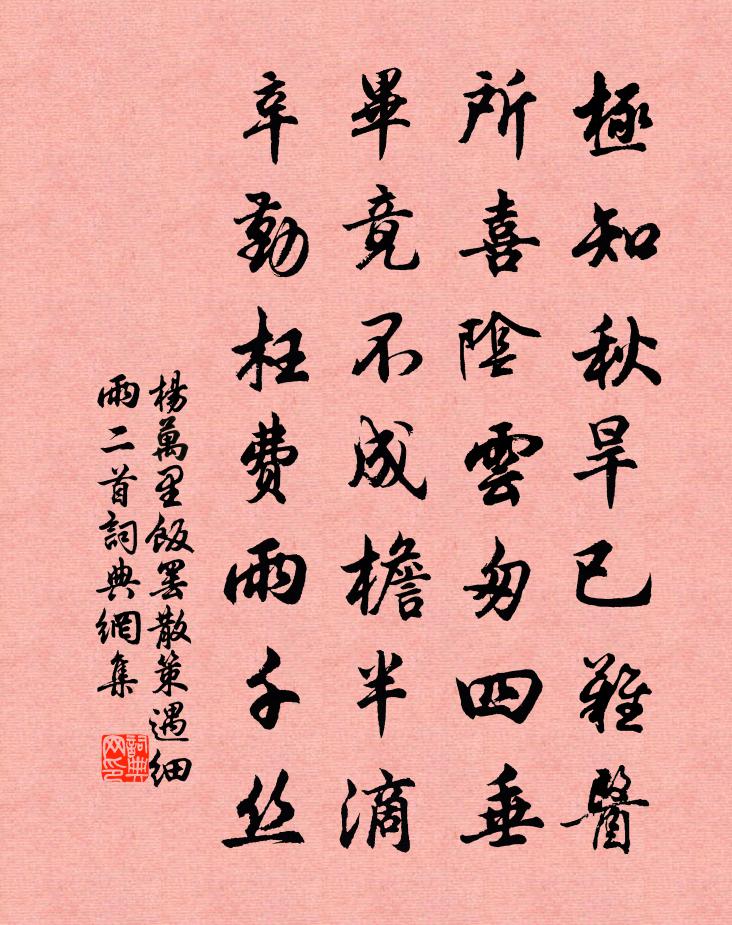 極知秋旱已難醫
所喜陰雲匆四垂
畢竟不成檐半滴
辛勤枉費雨千丝
楊萬里飯罢散策遇细
雨二首詞典網集
詞典
网印